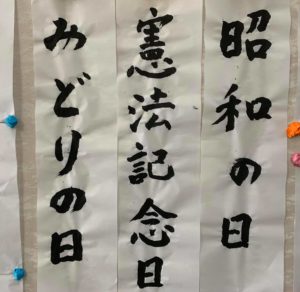 昭和の日
憲法記念日
みどりの日